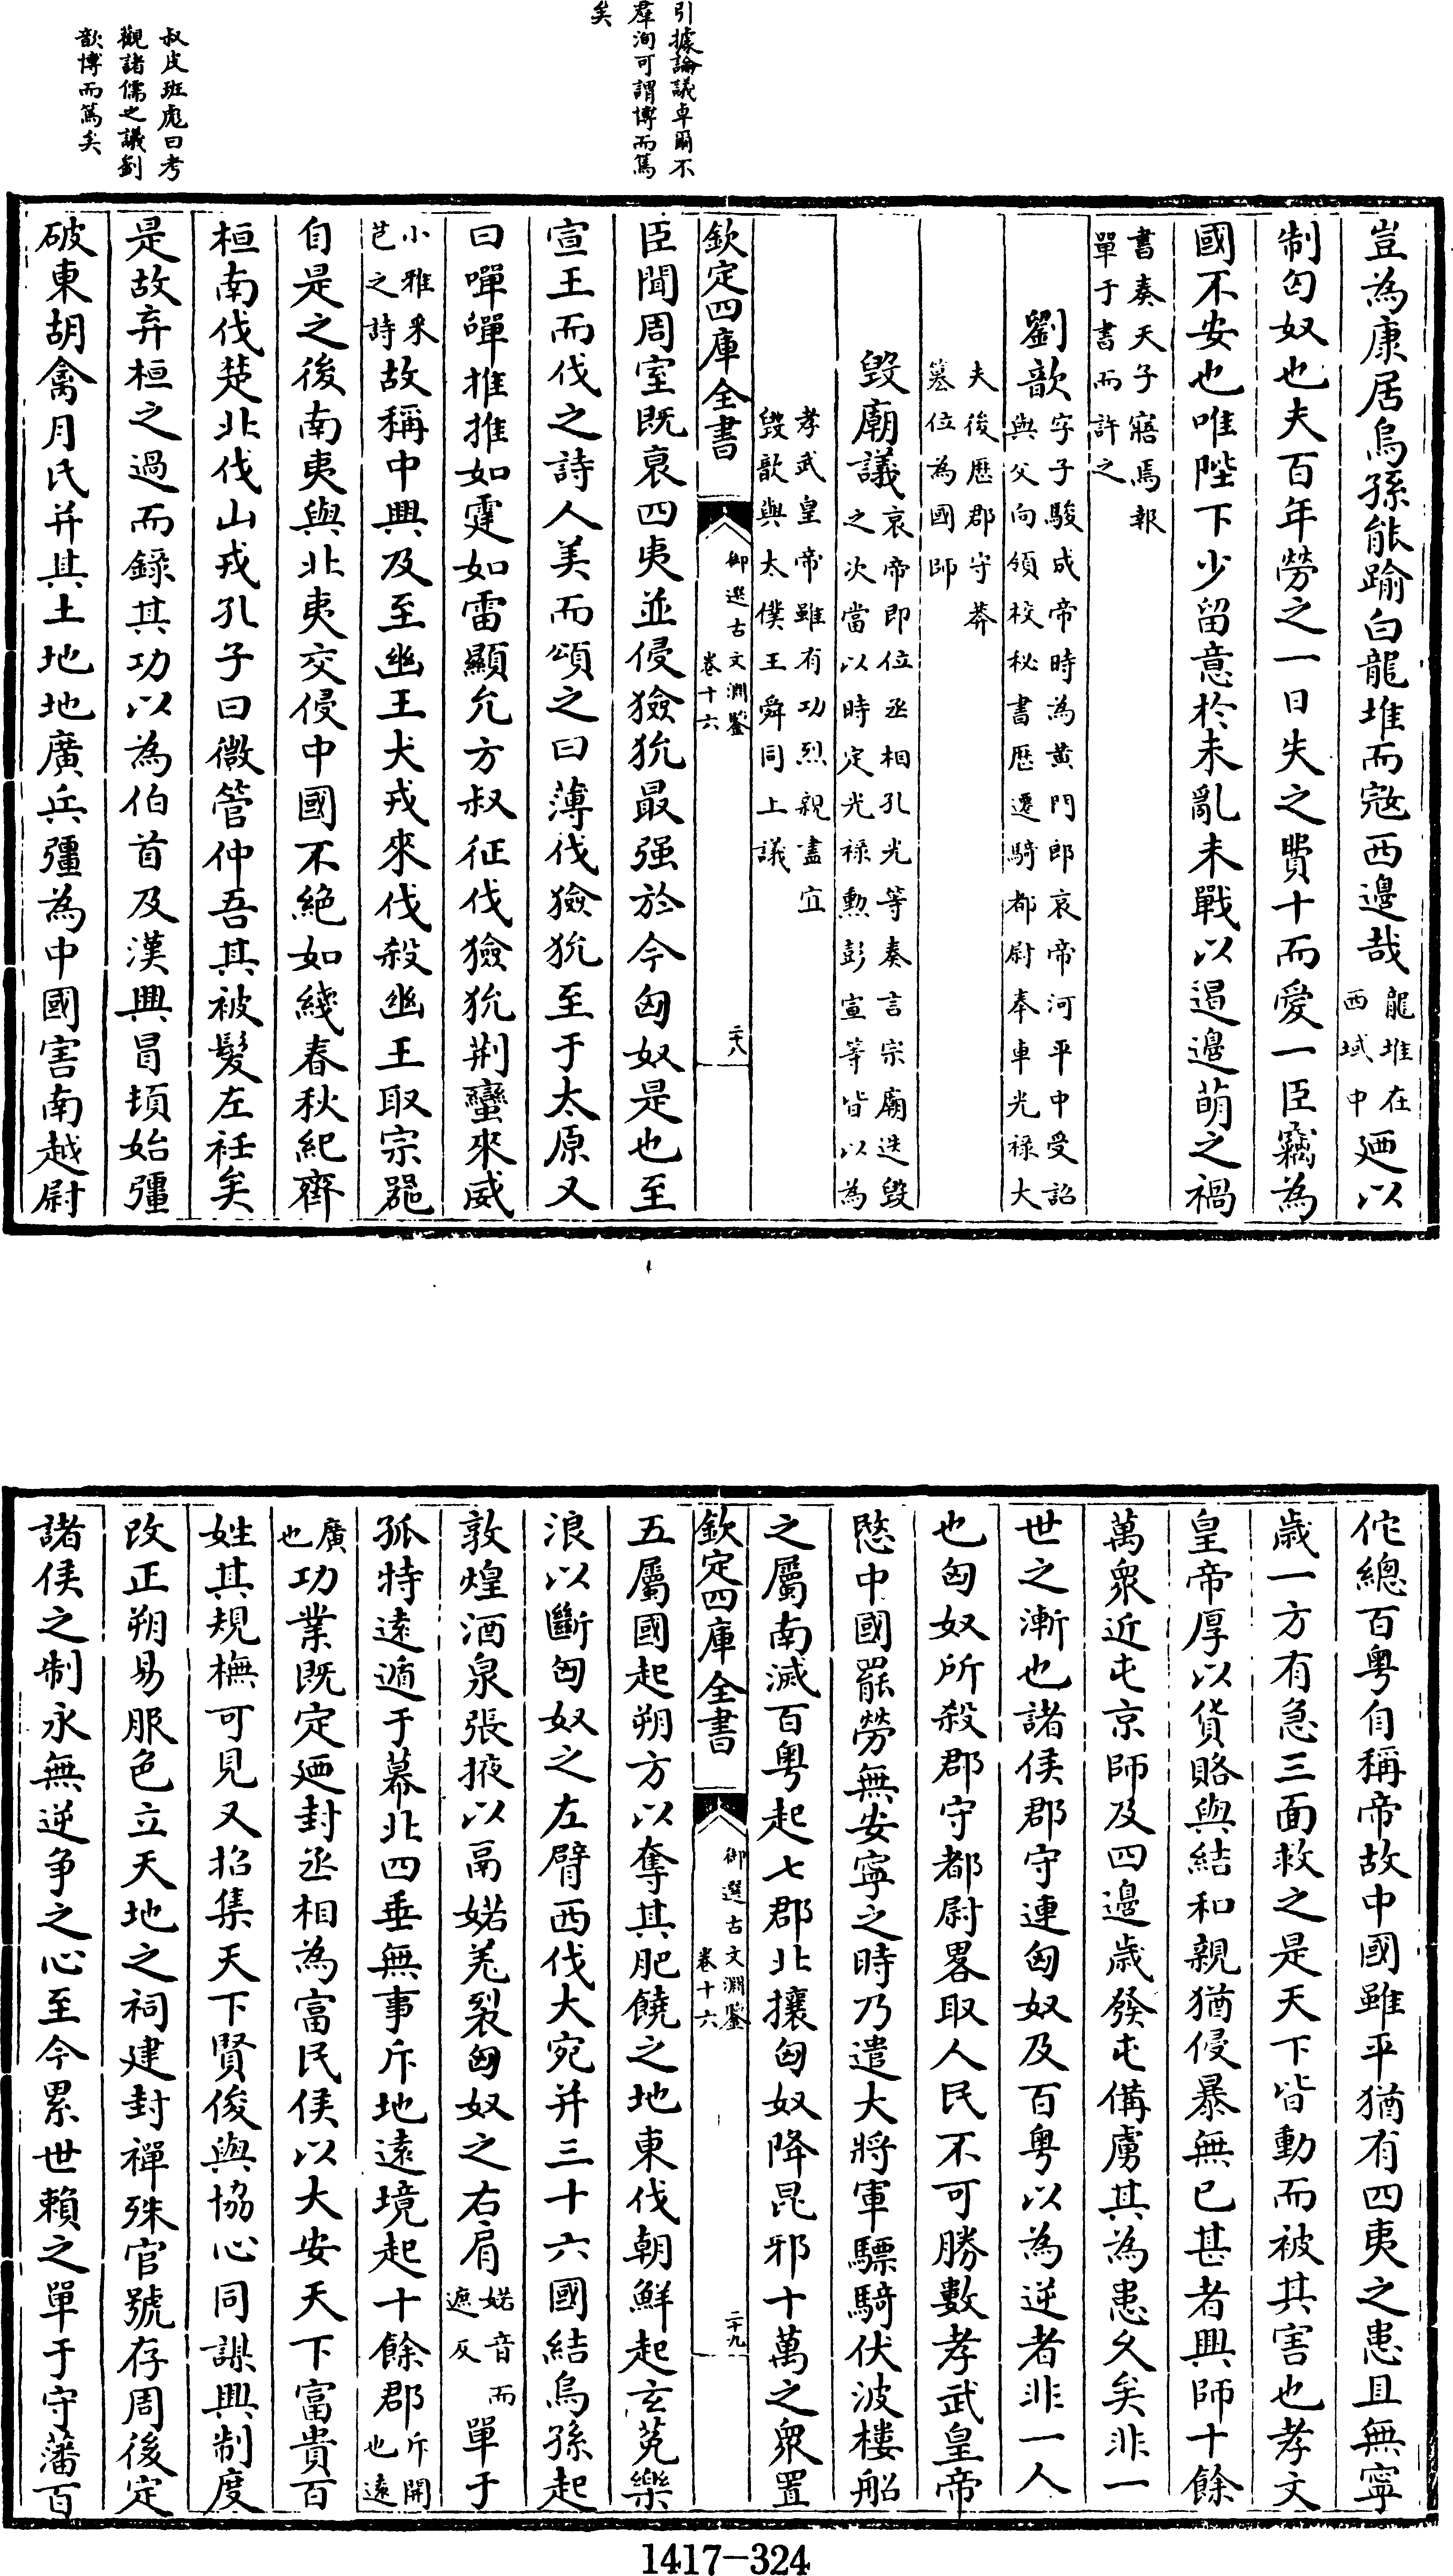 引據論議卓爾不
羣洵可謂博而篤
矣
叔皮班彪曰考
觀諸儒之議劉
歆博而篤矣
豈為康居烏孫能踰白龍堆而寇西邊哉龍堆在西域中廼以
制匈奴也夫百年勞之一日失之費十而愛一臣竊為
國不安也唯陛下少留意於未亂未戰以遏邊萌之禍
書奏天子寤焉報
單于書而許之
劉歆字子駿成帝時為黃門郎哀帝河平中受詔
與父向領校秘書歷遷騎都尉奉車光祿大
夫後歷郡守莽
簒位為國師
毀廟議哀帝即位丞相孔光等奏言宗廟迭毀
之次當以時定光祿勲彭宣等皆以為
孝武皇帝雖有功烈親盡宜
毀歆與太僕王舜同上議
欽定四庫全書
御選古文淵鑒
卷十六
二十八
臣聞周室既衰四夷並侵獫狁最强於今匈奴是也至
宣王而伐之詩人美而頌之曰薄伐獫狁至于太原又
曰嘽嘽推推如霆如雷顯允方叔征伐獫狁荆蠻來威
小雅采芑之詩故稱中興及至幽王犬戎來伐殺幽王取宗器
自是之後南夷與北夷交侵中國不絶如綫春秋紀齊
桓南伐楚北伐山戎孔子曰微管仲吾其被髮左衽矣
是故弃桓之過而錄其功以為伯首及漢興冒頓始彊
破東胡禽月氏并其土地地廣兵彊為中國害南越尉
佗總百粤自稱帝故中國雖平猶有四夷之患且無寧
歳一方有急三面救之是天下皆動而被其害也孝文
皇帝厚以貨賂與結和親猶侵暴無已甚者興師十餘
萬衆近屯京師及四邊歳發屯備虜其為患久矣非一
世之漸也諸侯郡守連匈奴及百粤以為逆者非一人
也匈奴所殺郡守都尉畧取人民不可勝數孝武皇帝
愍中國罷勞無安寧之時乃遣大將軍驃騎伏波樓船
之屬南滅百粤起七郡北攘匈奴降昆邪十萬之衆置
欽定四庫全書
御選古文淵鑒
卷十六
二十九
五屬國起朔方以奪其肥饒之地東伐朝鮮起玄菟樂
浪以斷匈奴之左臂西伐大宛并三十六國結烏孫起
敦煌酒泉張掖以鬲婼羌裂匈奴之右肩婼音而遮反單于
孤特遠遁于幕北四垂無事斥地遠境起十餘郡斥開也遠
廣也功業既定廼封丞相為富民侯以大安天下富貴百
姓其規橅可見又招集天下賢俊與協心同謀興制度
改正朔易服色立天地之祠建封禪殊官號存周後定
諸侯之制永無逆争之心至今累世賴之單于守藩百
1417-324